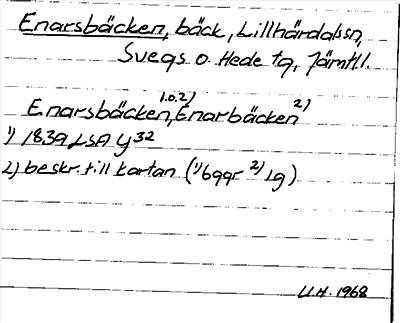 Enarsbäcken, bäck, Lillhärdalssn,
Svegs o. Hede tg, Jämtl l.
Enarsbäcken 1.o.2), Enarbäcken 2)
1) 1839 LSA Y 32
2) beskr. till kartan (1) bggr 2) Lg)
U.H. 1968